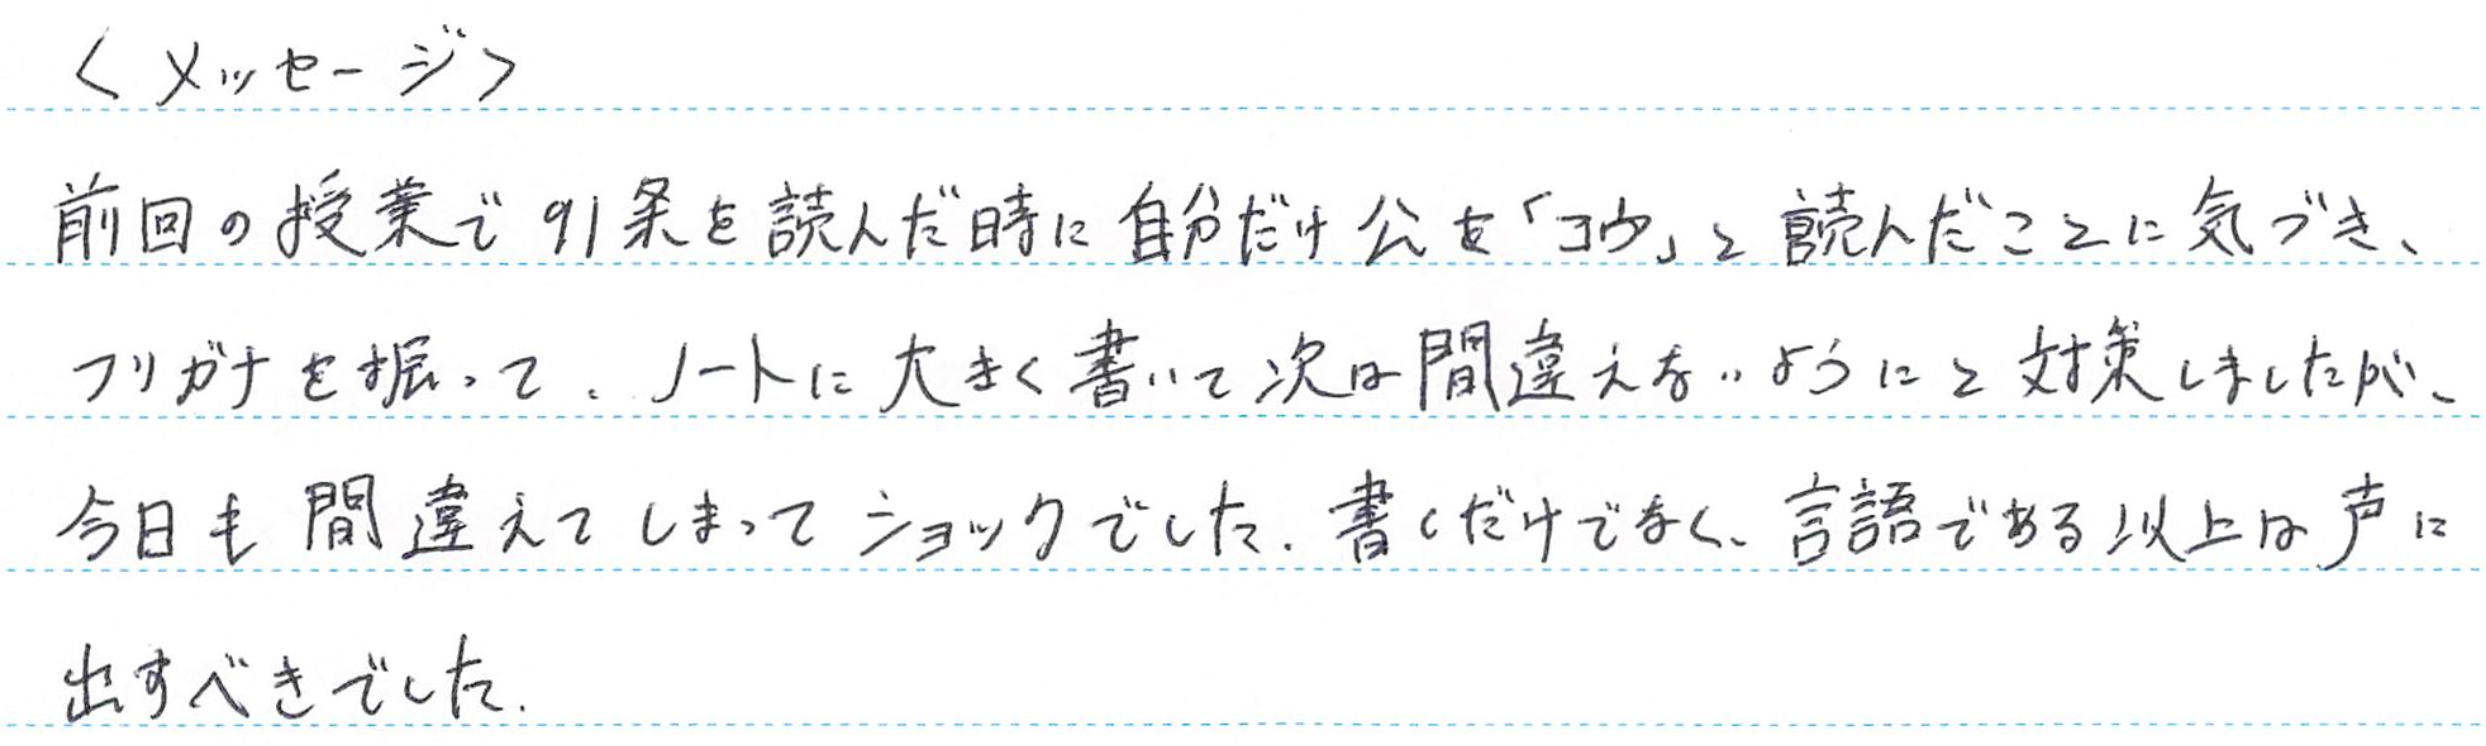 <メッセージ>
前回の授業で91条を読んだ時に自分だけ公を「コウ」と読んだことに気づき、
フリガナを振って、ノートに大きく書いて次は間違えないようにと対策しましたが、
今日も間違えてしまってショックでした。書くだけでなく、言語である以上は声に
出すべきでした。